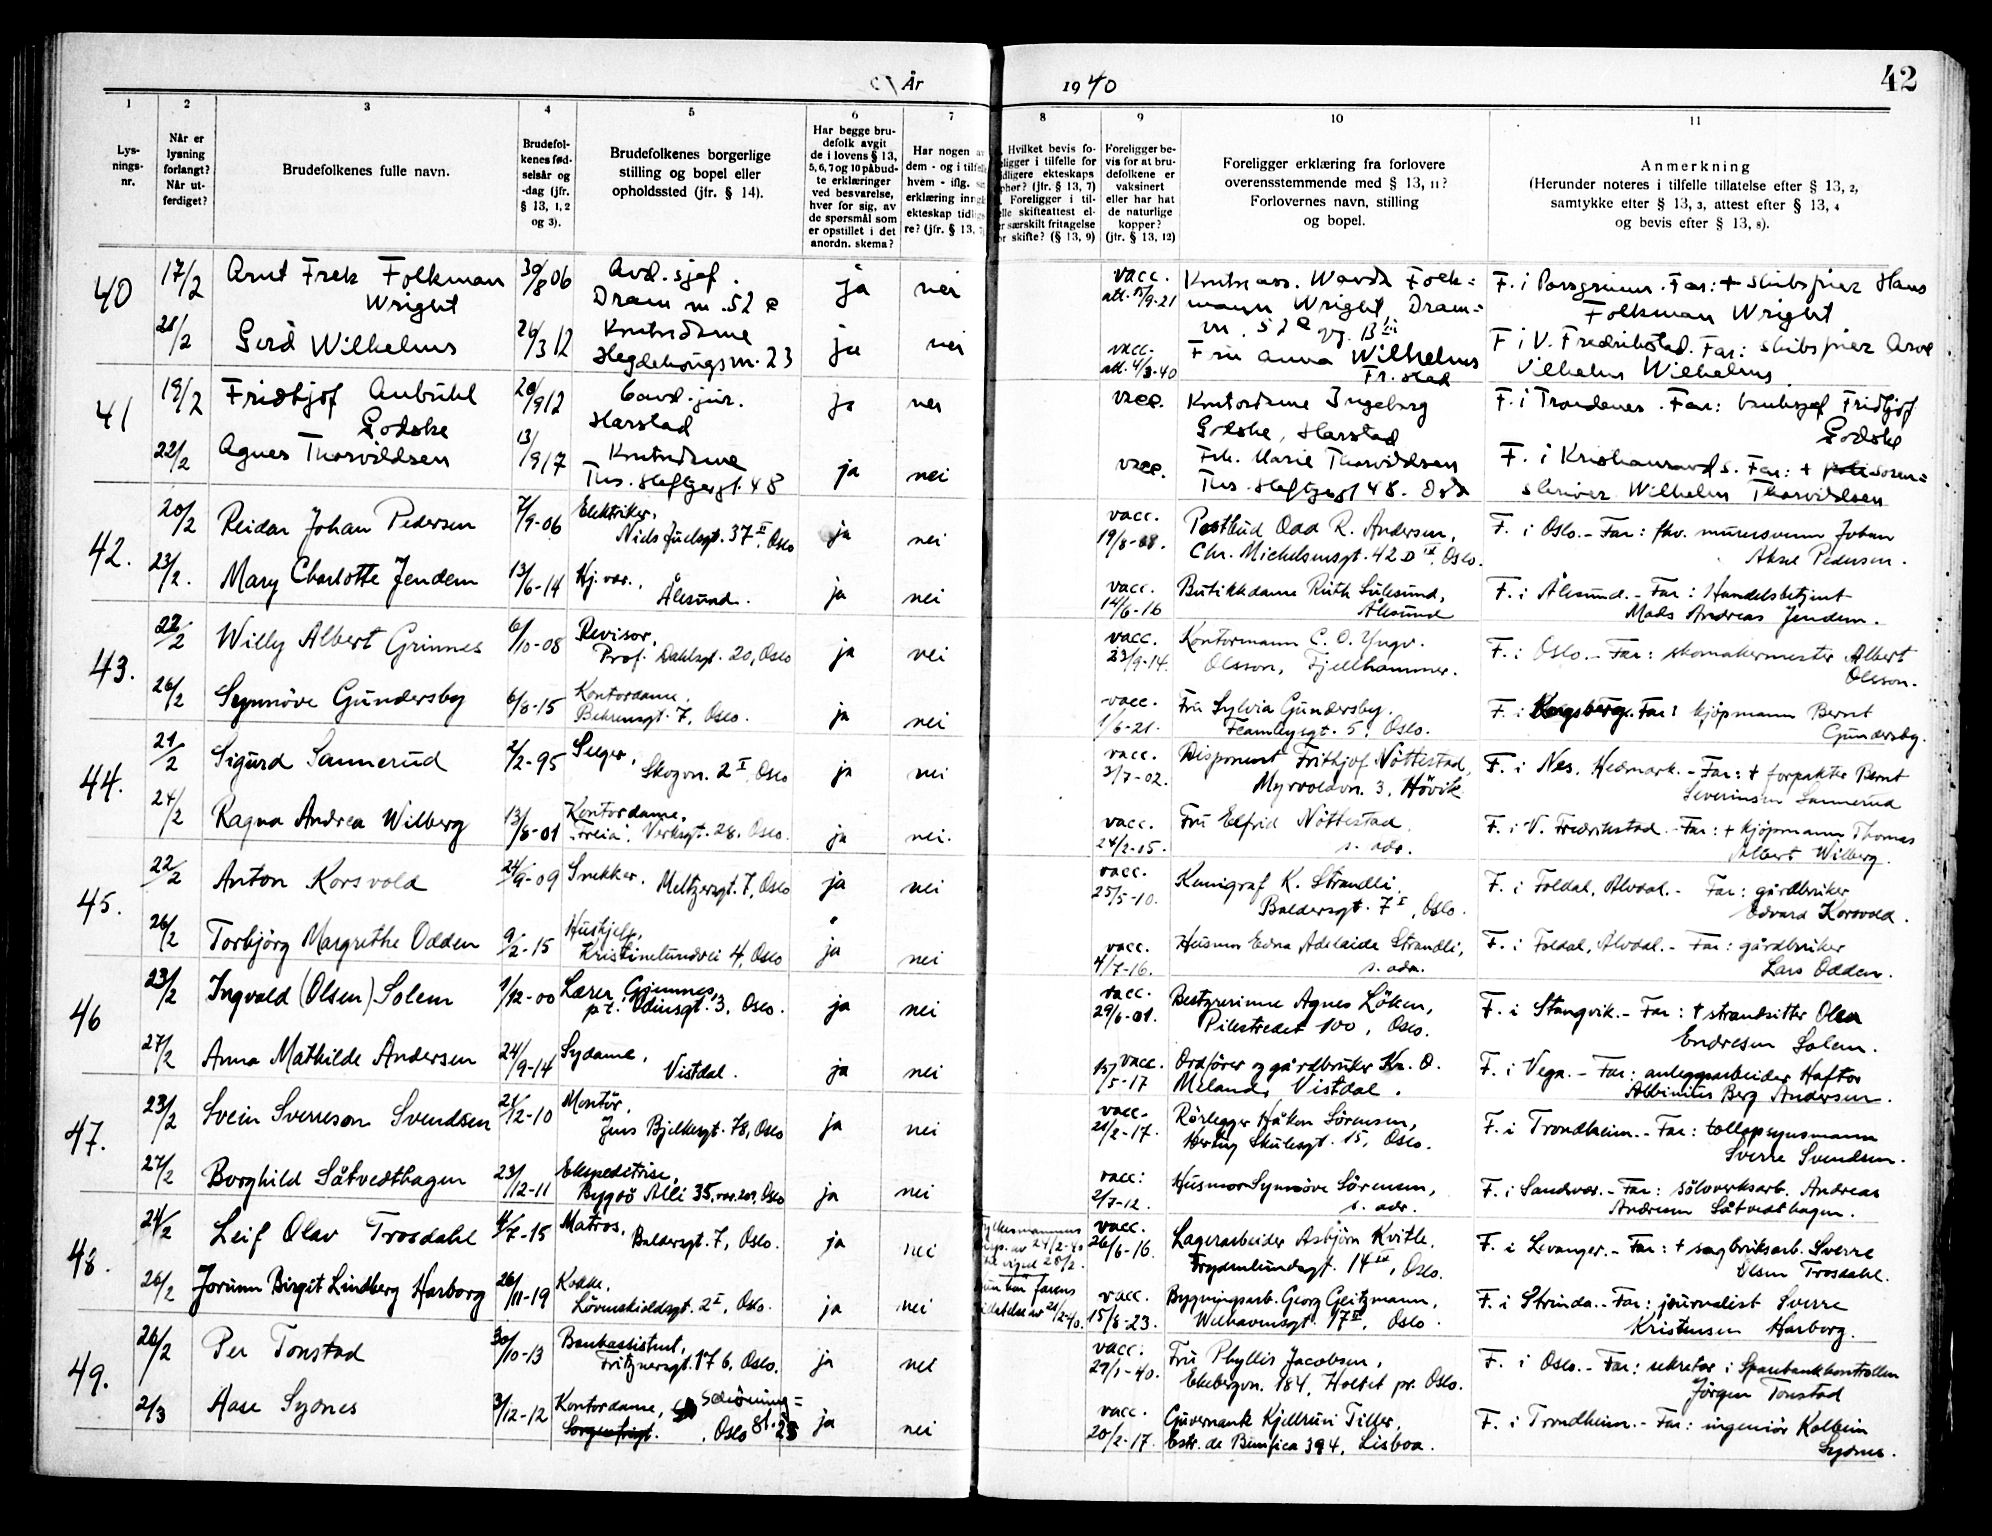 År 1940
42
1
2
3
4
5
6
7
8
9
10
11
Lys-
nings-
nr.
Når er
lysning
forlangt?
Når ut-
ferdiget?
Brudefolkenes fulle navn.
Brudefol-
kenes fød-
selsår og
-dag (jfr.
§ 13, 1, 2
og 3).
Brudefolkenes borgerlige
stilling og bopel eller
opholdssted (jfr. § 14).
Har begge bru-
defolk avgit
de i lovens § 13,
5, 6, 7 og 10 påbud-
te erklæringer
ved besvarelse,
hver for sig, av
de spørsmål som
er opstillet i det
anordn. skema?
Har nogen av
dem - og i tilfelle
hvem - iflg.
erklæring inngått
ekteskap tidlige-
re? (jfr. § 13,
Hvilket bevis fo-
religger i tilfelle for
tidligere ekteskaps
ophør? (jfr. § 13, 7)
Foreligger i til-
felle skifteattest el-
ler særskilt fritagelse
for skifte? (§ 13, 9)
Foreligger be-
vis for at bru-
defolkene er
vaksinert
eller har hat
de naturlige
kopper?
(jfr. § 13, 12)
Foreligger erklæring fra forlovere
overensstemmende med § 13, 11?
Forlovernes navn, stilling
og bopel.
Anmerkning
(Herunder noteres i tilfelle tillatelse efter § 13, 2,
samtykke efter § 13, 3, attest efter § 13, 4
og bevis efter § 13, 8).
40
17/2 Arnt Frek Folkman 30/8 06 Avd. sjef. ja nei vacc. Folk= F. i Porsgrunn. Far: + skibsfører Hans
Wright Dram m. 52 e mann Wright, Dram= Folkman Wright
28/2 Gerd Wilhelms 26/3 12 Kontordame ja nei vacc. Fru Anna Wilhelms F i V. Fredrikstad. Far: skibsfører Arve
Hegdehaugsm. 23 att. 4/3-40 Fr.stad Wilhelms
41
19/2 Fridtjof Anbühl 20/9 12 Cand. jur. ja nei vacc. Kontordame Ingeborg F. i Trondenes. Far: Fridtjof
Godske Harstad Godske, Harstad Godske
22/2 Agnes Thorvildsen 13/9 17 Kontordame ja nei vacc. Frk. Marie Thorvildsen F. i Kristiansand S. Far: + soren=
Ths. Heftyesgt. 48 Ths. Heftyesgt 48. Oslo skriver Wilhelm Thorvildsen
42.
20/2 Reidar Johan Pedersen 7/9-06 Elektriker, ja nei vacc. Postbud Odd R. Andersen, F. i Oslo. - Far: fhv. murersvenn Johan
Niels Juelsgt. 37 II, Oslo 19/8-08. Chr. Michelsensgt. 42 D, Oslo. Aksel Pedersen.
23/2. Mary Charlotte Jendem 13/6-14 Hj. vær., ja nei vacc. Butikkdame Ruth Sulesund, F. i Ålesund. - Far: Handelsbetjent
Ålesund. 14/6-16 Ålesund Mads Andreas Jendem.
43.
22/2 Willy Albert Grinnes 6/10-08 Revisor, ja nei vacc. Kontormann C. O. Yngv. F. i Oslo. - Far: skomakermester Albert
Prof. Dahlsgt. 20, Oslo 23/9-14. Olsson, Fjellhammer. Olsson.
26/2 Synnöve Gundersby 6/8-15 Kontordame. ja nei vacc. Fru Sylvia Gundersby. F. i Kongsberg. Far: kjöpmann Bernt
Behrensgt. 7, Oslo. 1/6-21. Fearnleysgt. 5, Oslo. Gundersby.
44.
21/2 Sigurd Sannerud 2/2-95 Selger, ja nei vacc. Disponent Frithjof Nöttestad, F. i Nes, Hedmark. - Far: + forpakter Bernt
Skogvn. 2 I, Oslo 3/7-02. Myrvoldvn. 3, Hövik Severinsen Sannerud
24/2 Ragna Andrea Wilberg 13/8-01 Kontordame, ja nei. vacc. Fru Elfrid Nöttestad. F. i V. Fredrikstad. - Far: + kjöpmann Thomas
"Freia". Verksgt. 28, Oslo. 24/2-15. s. adr. Albert Wilberg.
45.
22/2 Anton Korsvold 24/9-09 Snekker. ja nei vacc. Kemigraf K. Strandli. F. i Foldal, Alvdal. - Far: gårdbruker
Meltzersgt. 7, Oslo 25/5-10. Baldersgt. 7 I, Oslo. Edvard Korsvold.
26/2 Torbjörg Margrethe Odden 9/2-15 Hushjelp, ja nei vacc. Husmor Edna Adelaide Strandli, F. i Foldal, Alvdal. - Far: gårdbruker
Kristinelundvei 4, Oslo 4/7-16. s. adr. Lars Odden.
46
23/2 Ingvald (Olsen) Solem 1/12-00 Lærer, Gjemnes, ja nei vacc. Bestyrerinne Agnes Löken, F. i Stangvik. - Far: + strandsitter Olea
p.t. Odinsgt. 3, Oslo. 29/6-01. Pilestredet 100, Oslo. Endresen Solem.
27/2 Anna Mathilde Andersen 24/9-14 Sydame, ja nei vacc. Ordförer og gårdbruker Kn. O. F. i Vega. - Far: anleggsarbeider Haftor
Vistdal. 15/5-17 Meland, Vistdal. Albinius Berg Andersen.
47.
23/2 Svein Sverreson Svendsen 21/12-10 Montör, ja nei vacc. Rörlegger Håkon Sörensen, F. i Trondheim. - Far: tolloppsynsmann
Jens Bjelkesgt. 78, Oslo 21/2-17. Hertug Skulesgt. 15, Oslo. Sverre Svendsen.
27/2 Borghild Såtvedthagen 23/12-11 Ekspeditrise, ja nei vacc: Husmor Synnöve Sörensen, F. i Sandsvær. - Far: sölvverksarb. Andreas
Bygdö Allé 35, vær. 209, Oslo 2/7-12. s. adr. Andresen Såtvedthagen.
48.
24/2 Leif Olav Trosdahl 4/7-15 Matros, ja nei Fylkesmannens vacc. Lagerarbeider Asbjörn Kvitle, F. i Levanger. - Far: + sagbruksarb. Sverre
Baldersgt. 7, Oslo. av 24/2-40 26/6-16. Frydenlundsgt. 14 III, Oslo. Olsen Trosdahl.
26/2 Jorunn Birgit Lindberg Harborg 26/11-19 Kokke, ja nei farens vacc. Bygningsarb. Georg Geitzmann, F. i Strinda. - Far: journalist Sverre
Lövenskioldsgt. 2 I, Oslo. 15/8-23. Welhavensgt. 17 II, Oslo. Kristensen Harborg.
49.
26/2 Per Tonstad 30/10-13 Bankassistent, ja nei vacc. Fru Phyllis Jacobsen, F. i Oslo. - Far: sekretær i Sparebankkontrollen
Fritznersgt. 17 b, Oslo. 27/1-40. Ekebergvn. 184, Holtet pr. Oslo. Jörgen Tonstad
2/3 Aase Sydnes 3/12-12 Kontordame, Schöning= ja nei vacc. Guvernante Kjellrun Tiller, F. i Trondheim. - Far: ingeniör Kolbein
Sorgenfrigt. , Oslo gt. 25 20/2-17. Estr. de Benfica 394, Lisboa. Sydnes.